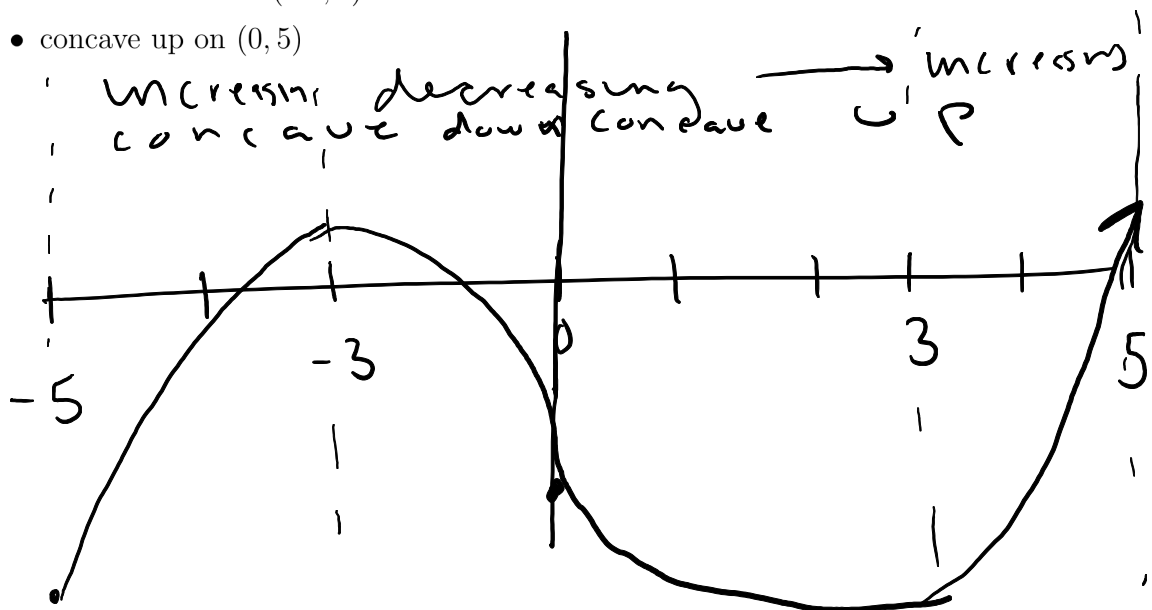 • concave up on (0, 5)
increasing decreasing → increasing
concave down concave up
-5
-3
0
3
5